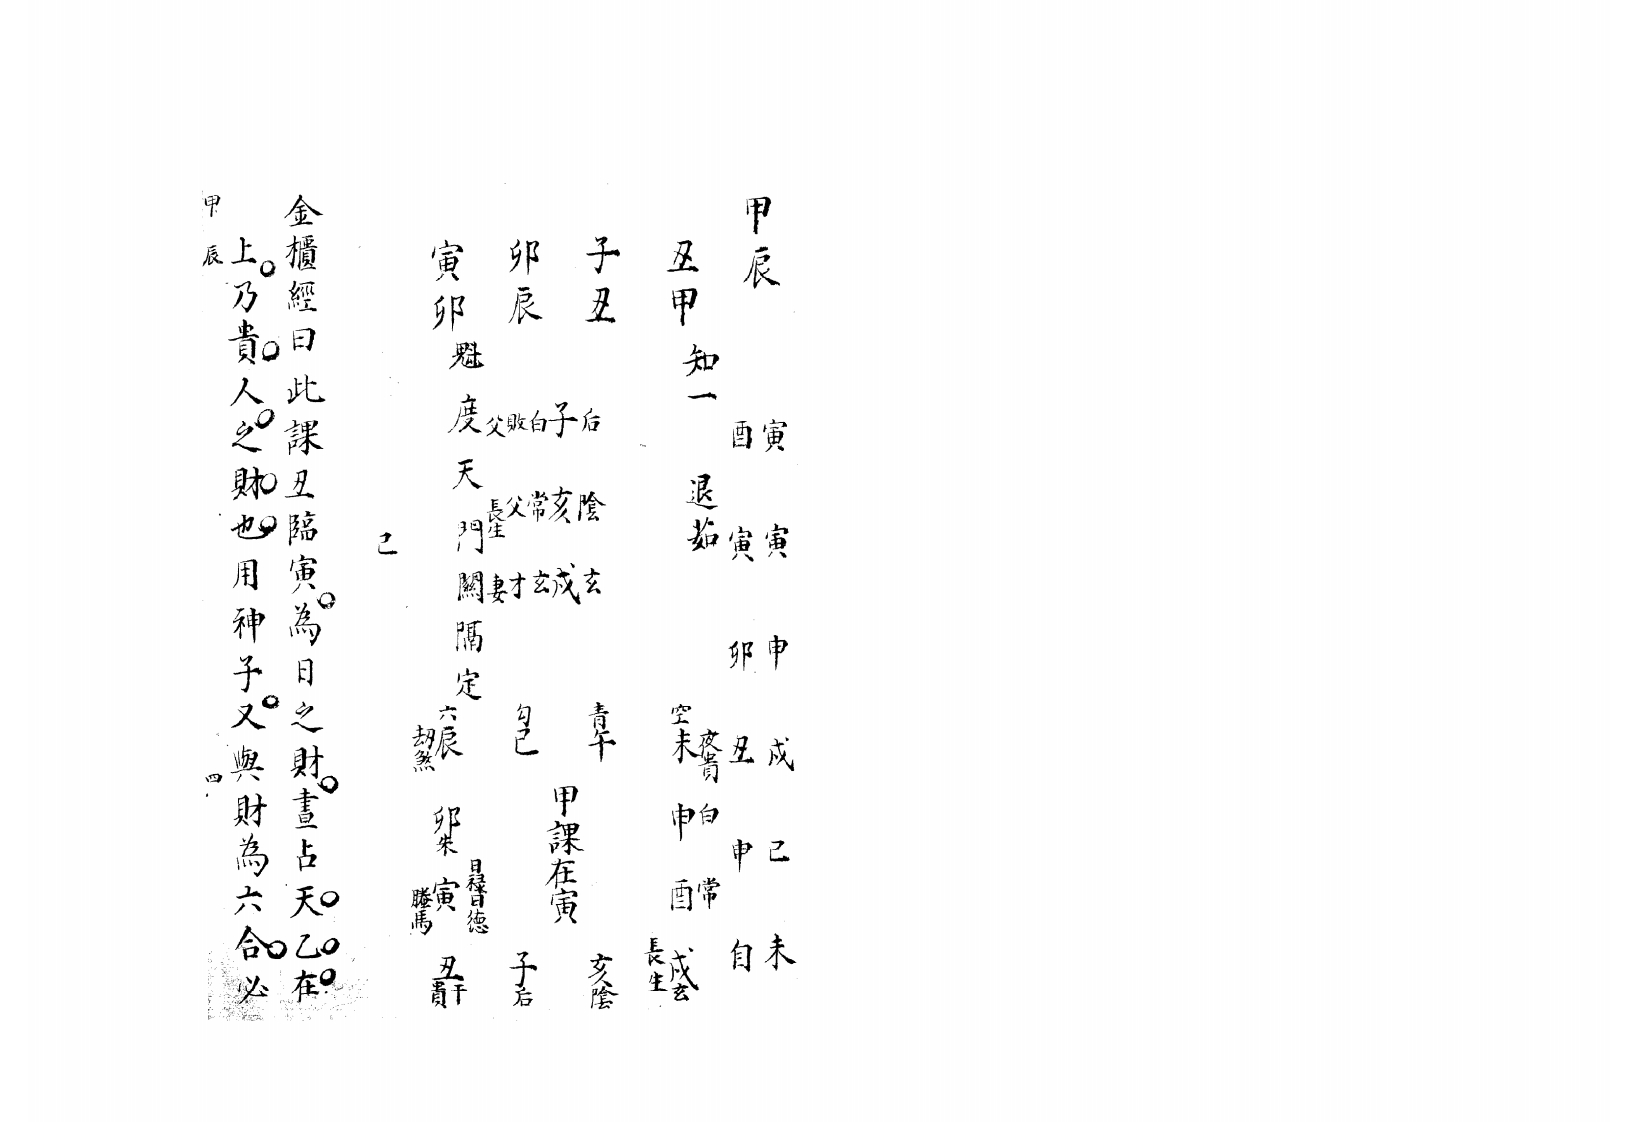 甲辰
寅 寅 申 戍 己 未
酉 寅 卯 丑 申 自
丑甲 知一 退茹
子丑
卯辰
寅卯
后 陰 玄
子 亥 戍
白 常 玄
敗 父 才
父 長生 妻
魁度天門關隔定
夜貴 白 常
空未 申 酉 戍玄 長生
青午 亥陰
甲課在寅
勾巳 子后
六辰 劫煞 卯朱 寅 日祿日德 騰馬 丑干貴
己
金櫃經曰此課丑臨寅為日之財晝占天乙在
上乃貴人之財也用神子又與財為六合必
甲辰 四